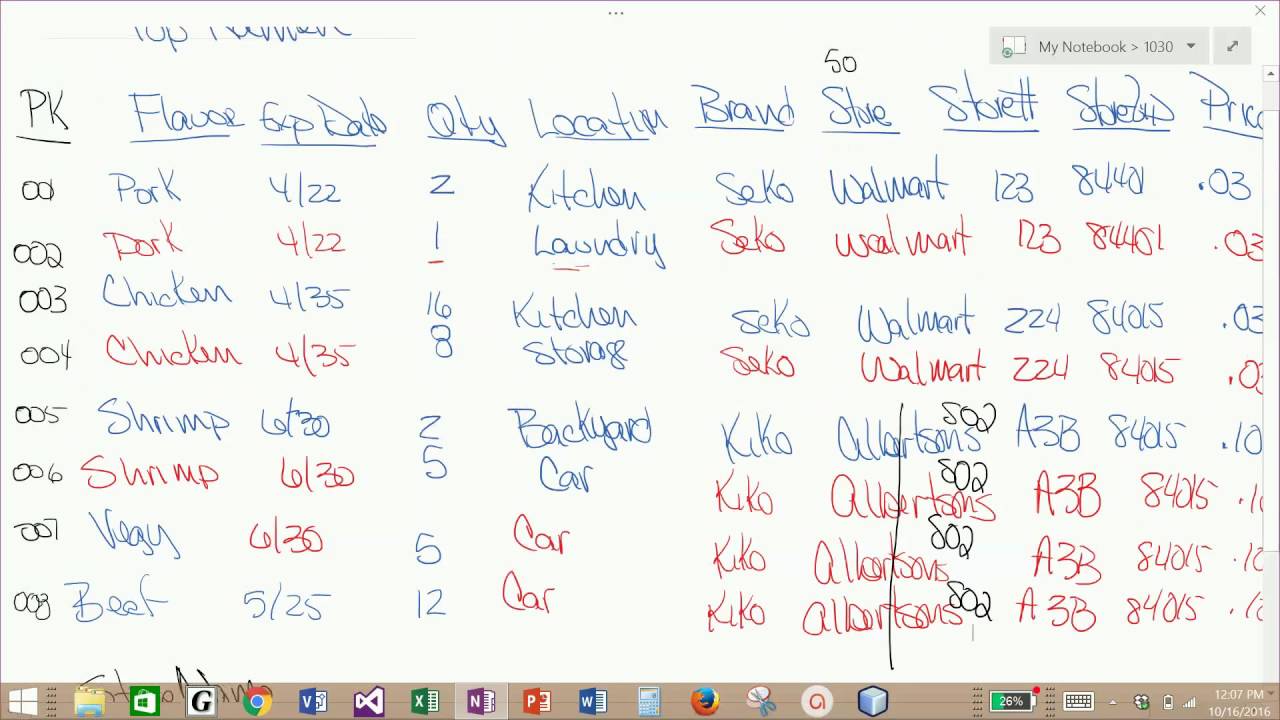 Top Ramen
My Notebook > 1030
50
PK Flavor Exp Date Qty Location Brand Store Store# StoreZip Price
001 Pork 4/22 2 Kitchen Seko Walmart 123 84401 .03
002 Pork 4/22 1 Laundry Seko Walmart 123 84401 .03
003 Chicken 4/35 16 Kitchen Seko Walmart 224 84015 .03
004 Chicken 4/35 8 Storage Seko Walmart 224 84015 .03
005 Shrimp 6/30 2 Backyard Kiko Albertsons 502 A3B 84015 .10
006 Shrimp 6/30 5 Car Kiko Albertsons 502 A3B 84015 .10
007 Vegy 6/30 5 Car Kiko Albertsons 502 A3B 84015 .10
008 Beef 5/25 12 Car Kiko Albertsons 502 A3B 84015 .10
26%
12:07 PM
10/16/2016